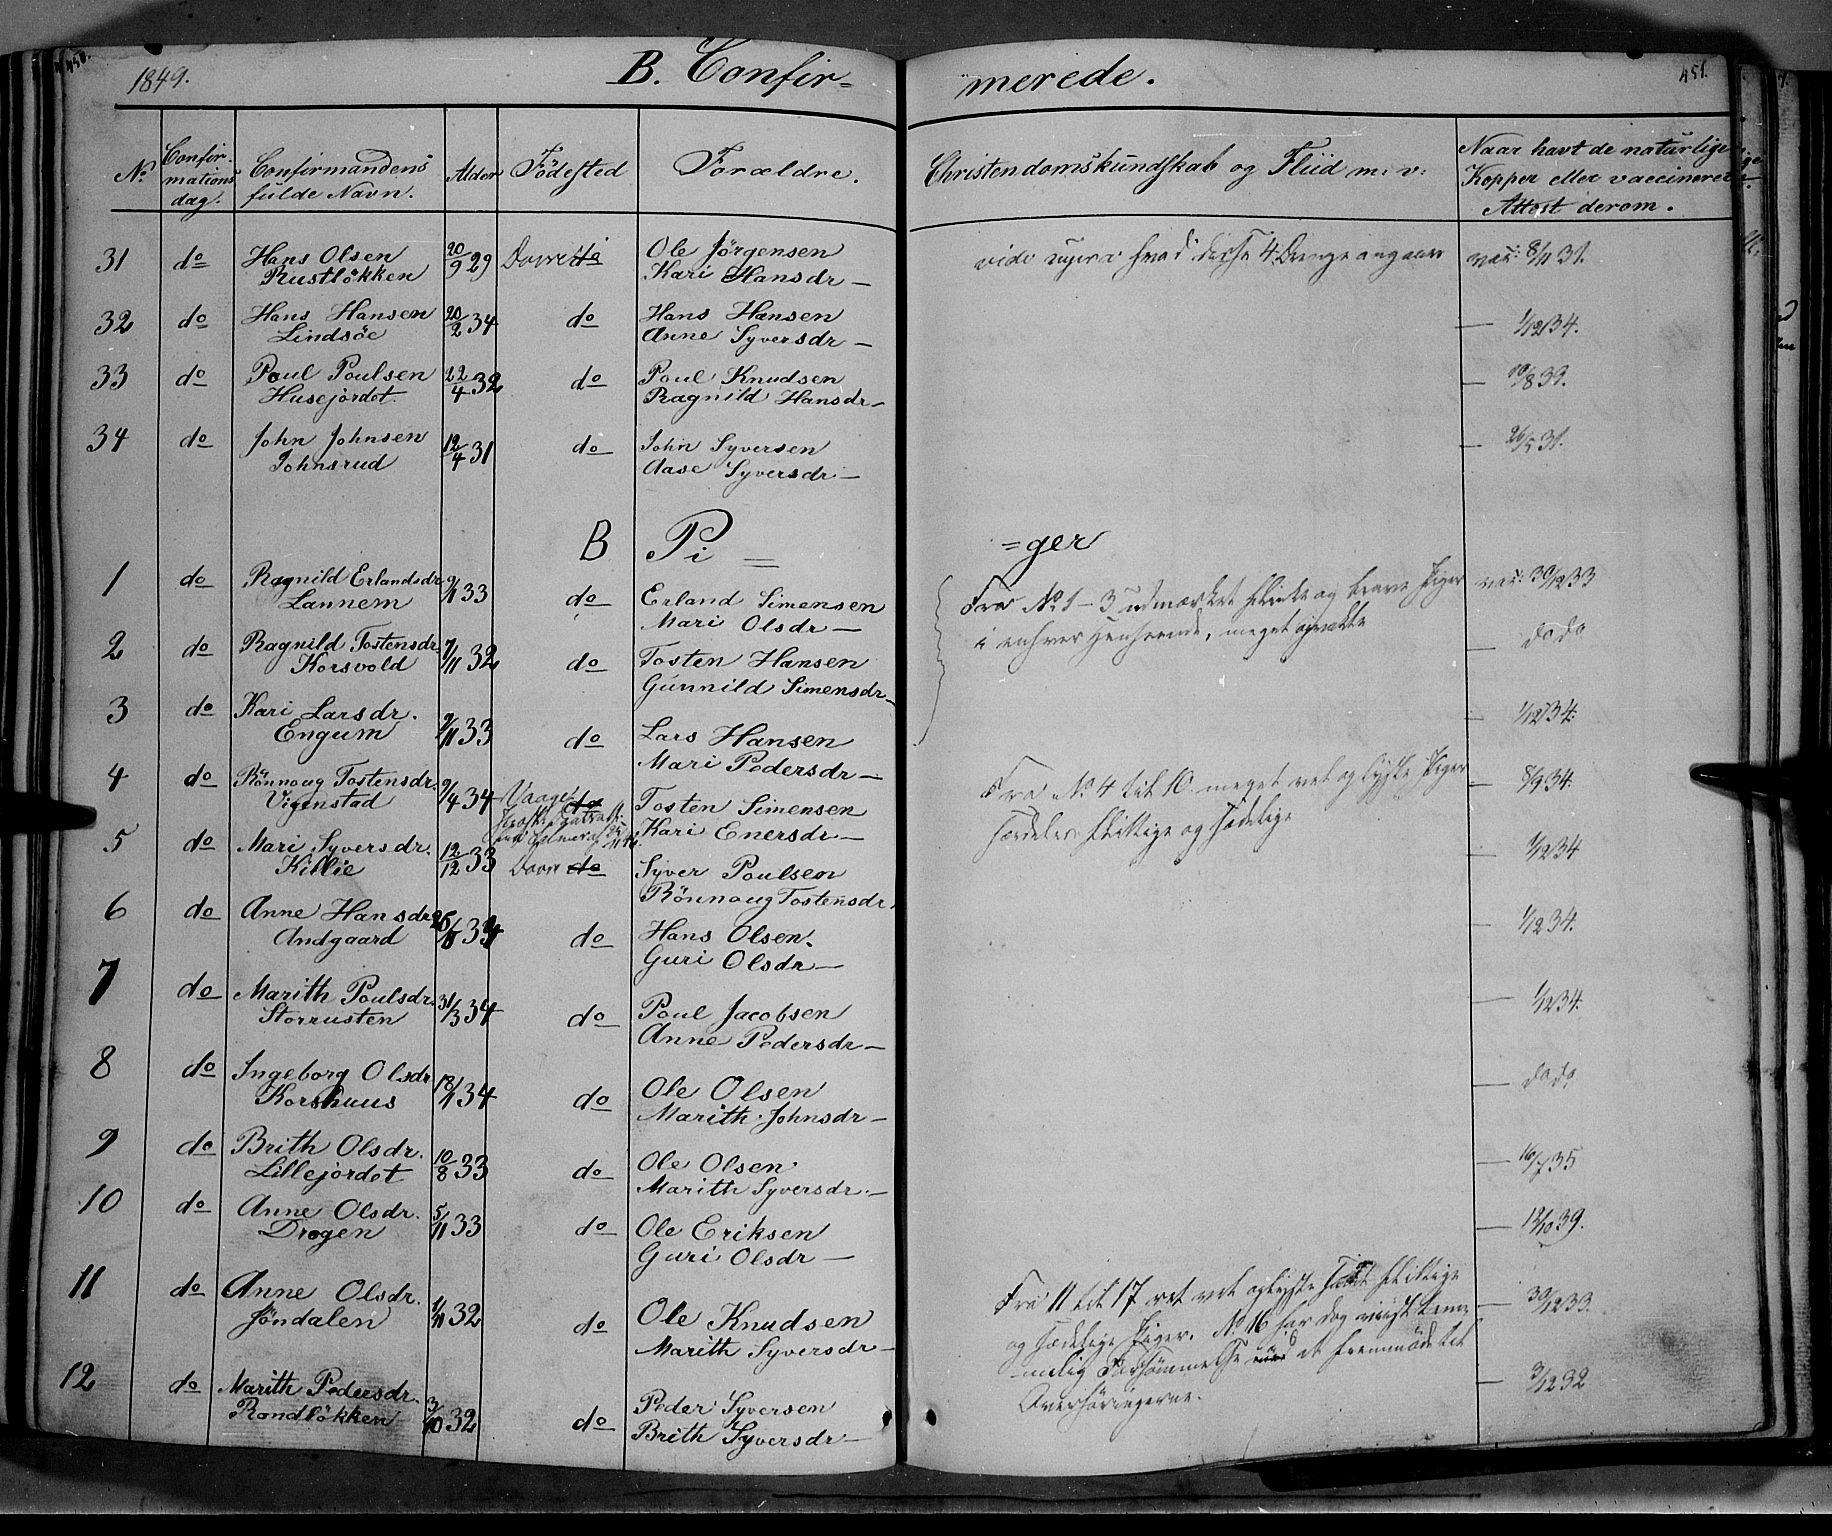 450.
1849.
B. Confir=
merede.
451.
No
Confir-
mations
dag.
Confirmandens
fulde Navn.
Alder
Födested
Forældre.
Christendomskundskab og Fliid m: v:
Naar havt de naturlige
Kopper eller vaccinerede
Attest derom.
31 do Hans Olsen 20/9 29 Dovre do Ole Jörgensen vide supra hvad disse 4 Drenge angaaer vac: 8/11 31.
Rustlökken Kari Hansdr —
32 do Hans Hansen 20/2 34 do Hans Hansen — 1/12 34.
Lindsöe Anne Syversdr —
33 do Poul Poulsen 22/4 32 do Poul Knudsen — 10/8 39.
Husejordet. Ragnild Hansdr —
34 do John Johnsen 12/4 31 do John Syversen — 26/5 31.
Johnsrud Aase Syversdr —
B Pi = =ger
1 do Ragnild Erlandsdr. 9/1 33 do Erland Simensen Fra No 1 - 3 udmærket flinke og brave Piger vac: 30/12 33
Lannem Mari Olsdr — i enhver Henseende, meget opvakte
2 do Ragnild Tostensdr. 7/11 32 do Tosten Hansen — do do
Korsvold Gunnild Simensdr —
3 do Kari Larsdr. 9/11 33 do Lars Hansen — 1/12 34.
Engum Mari Pedersdr —
4 do Rönnoug Tostensdr. 9/4 34 Vaage do Tosten Simensen Fra No 4 til 10 meget vel oplyste Piger — 8/9 34.
Vigenstad Kari Enersdr — særdeles flittige og sædelige
5 do Mari Syversdr. 12/12 33 Dovre do Syver Poulsen — 1/12 34
Killie Rönnoug Tostensdr.
6 do Anne Hansdr 34 do Hans Olsen. — 1/12 34.
Andgaard Guri Olsdr —
7 do Marith Poulsdr. 31/3 34 do Poul Jacobsen — 1/12 34.
Storrusten Anne Pedersdr —
8 do Ingeborg Olsdr 18/1 34 do Ole Olsen — do do
Korshuus Marith Johnsdr —
9 do Brith Olsdr. 10/8 33 do Ole Olsen — 16/7 35
Lillejordet Marith Syversdr. —
10 do Anne Olsdr. 5/11 33 do Ole Eriksen — 12/10 39.
Drogen Guri Olsdr —
11 do Anne Olsdr. 1/11 32 do Ole Knudsen Fra 11 til 17 ret vel oplyste samt flittige — 30/12 33.
Jöndalen Marith Syversdr — og sædelige Piger. No 16 har dog viist tem=
12 do Marith Pedersdr. 3/10 32 do Peder Syversen melig Forsömmelse ved at fremmöde til — 3/12 32
Randlökken Brith Syversdr — Overhöringerne.